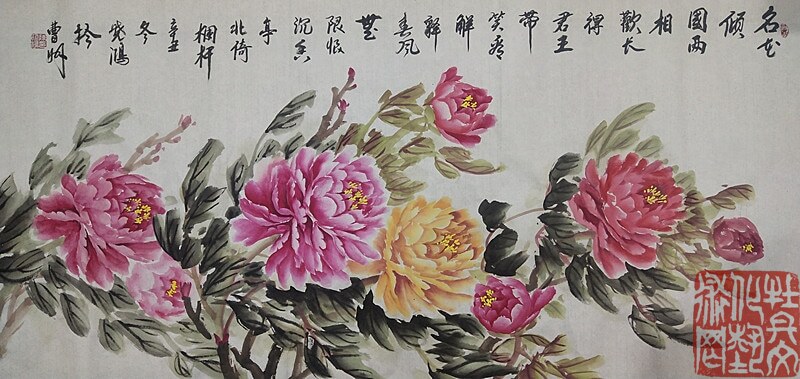 名花
傾
國兩
相
歡长
得
君王
帶
笑看
解
釋
春风
無
限恨
沉香
亭
北倚
欄杆
辛丑
冬
飛鴻
於
曹州